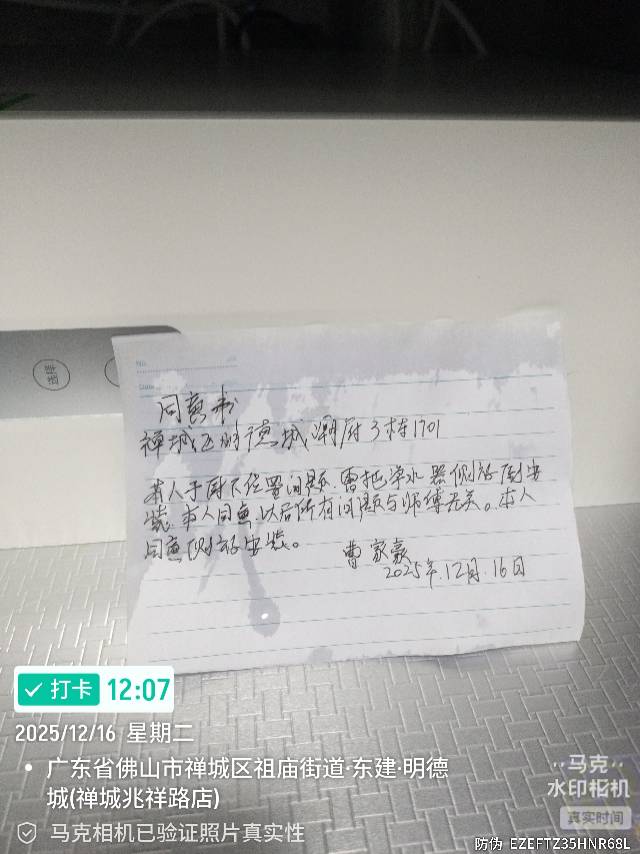 选择
No.
Date
同意书
禅城区明德城潮府3栋1701
本人于厨下位置问题,需把净水器侧放厨安
装,本人同意,以后所有问题与师傅无关。本人
同意侧放安装。
曹家豪
2025年.12月.16日
打卡 12:07
2025/12/16 星期二
广东省佛山市禅城区祖庙街道·东建·明德
城(禅城兆祥路店)
马克相机已验证照片真实性
马克
水印相机
真实时间
防伪 EZEFTZ35HNR68L